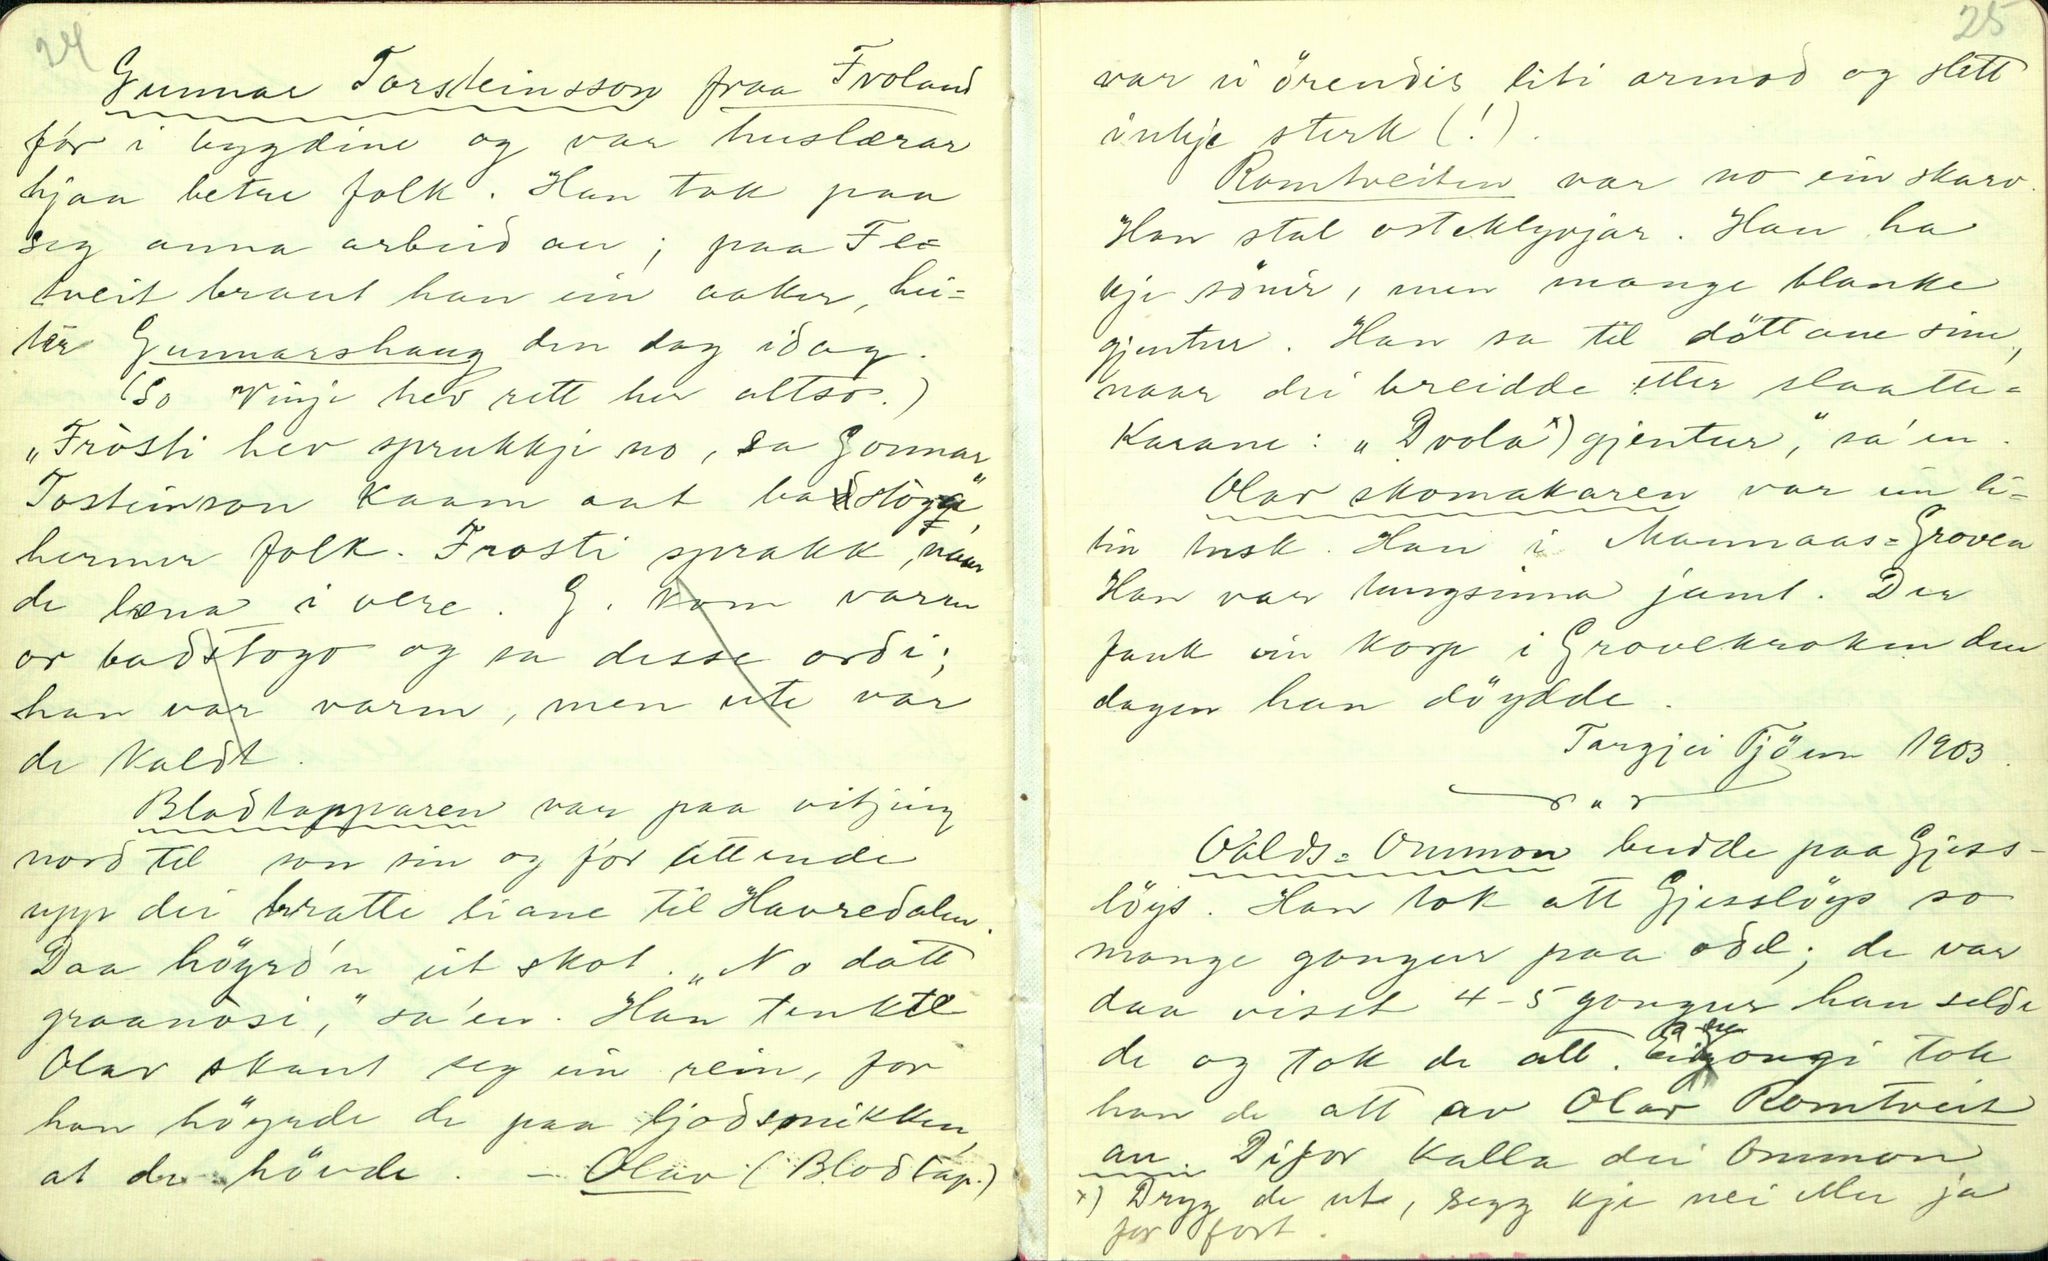 24
Gunnar Torsteinsson fraa Froland
fór i bygdine og var huslærar
hjaa betre folk. Han tok paa
seg anna arbeid au; paa Fle=
tveit braut han ein aaker, hei=
ter Gunnarshaug den dag idag.
(So Vinje hev rett her altso.)
"Fròsti hev sprukkje no, sa Gonnar
Tosteinson kaam aat badstòga",
hermer folk. Frosti sprakk, naar
de læna i vere. G. kom varm
or badstogo og sa desse ordi;
han var varm, men ute var
de kaldt.
Blodtapparen var paa vitjing
nord til son sin og fór attende
upp dei bratte liane til Havredalen.
Daa höyrd'n eit skot. "No datt
graanòsi," sa'en. Han tenkte
Olav skaut seg ein rein, for
han höyrde de paa ljodsmikken,
at de hövde. — Olav (Blodtap.)
25
var ei örendis liti armod og slett
inkje sterk (!).
Romtveiten var no ein skarv.
Han stal osteklyvjar. Han ha
kje sönir, men mange blanke
gjentur. Han sa til döttane sine,
naar dei breidde etter slaatte=
karane: "Dvola x) gjentur," sa'en.
Olav skomakaren var ein li=
tin tusk. Han i Mannaas=Groven
Han var tungsinna jamt. Der
fauk ein korp i Grovekroken den
dagen han döydde.
Targjei Tjöen 1903.
Valds=Ommon budde paa Gjess-
löys. Han tok att Gjesslöys so
mange gonger paa odel; de var
daa visst 4-5 gonger han selde
de og tok de att. Eigongi tok
han de att av Olav Romtveit
au. Difor kalla dei Ommon
x) Dryg de ut, segg kje nei eller ja
for fort.